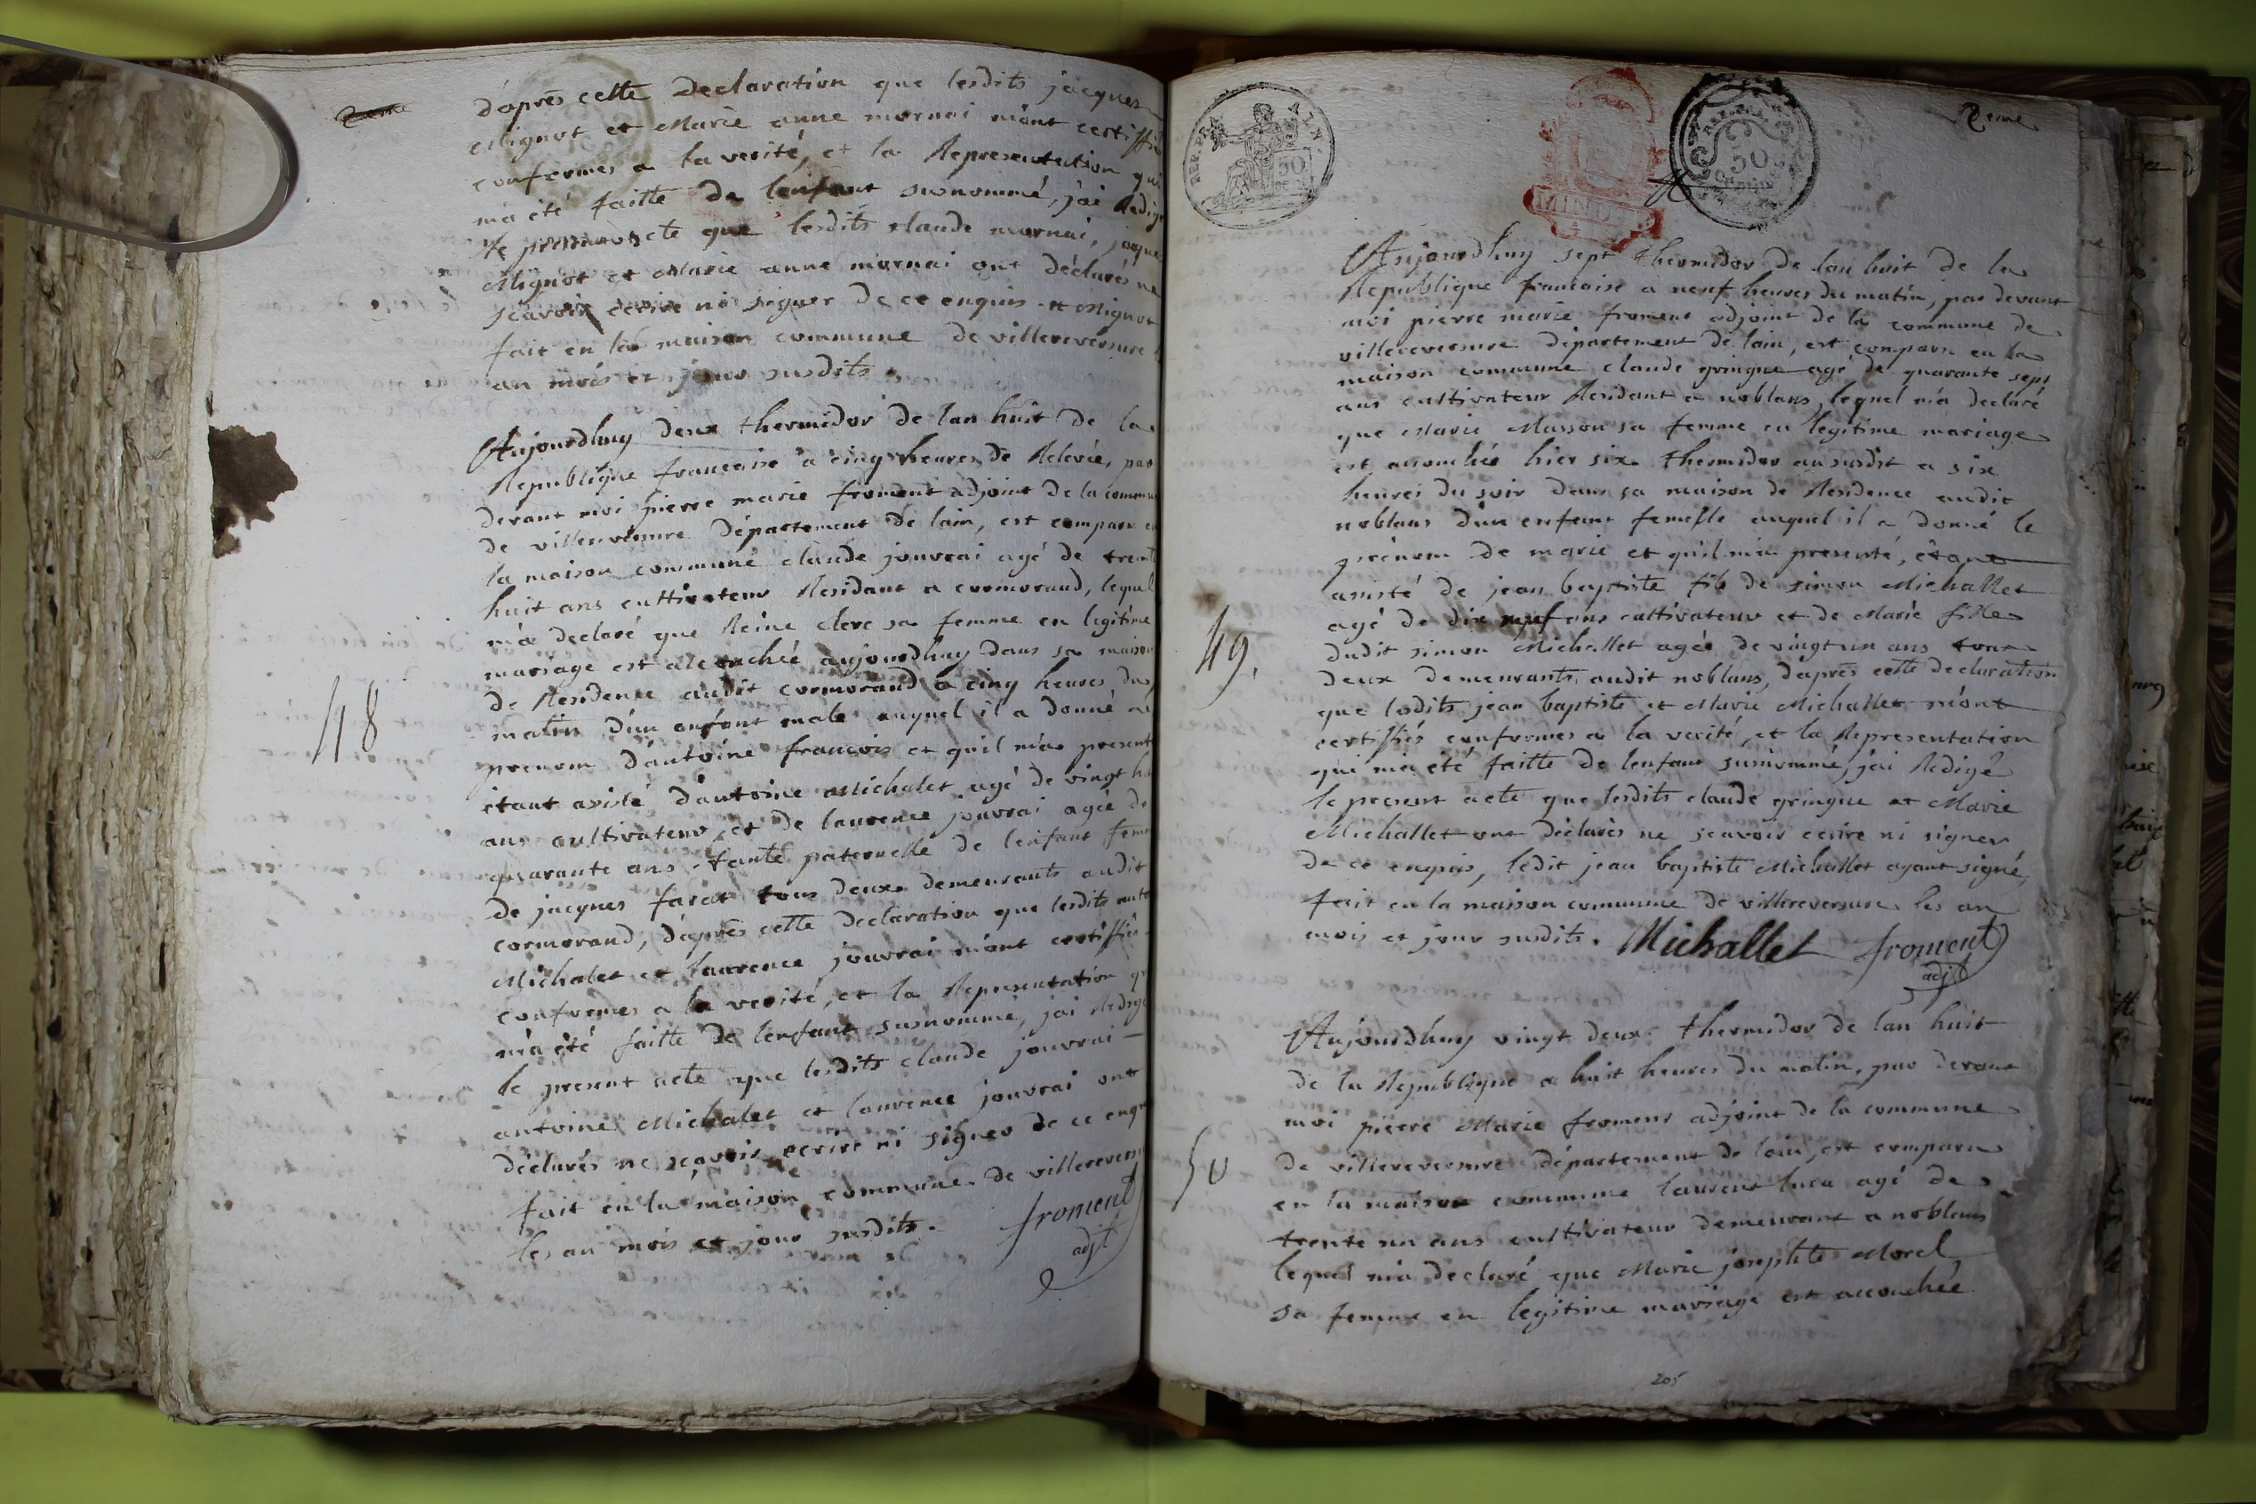 d'aprés cette declaration que lesdits jacques
Mignot et Marie anne mornai m'ont certiffié
conformes a la verité, et la Representation qui
m'a été faitte de lenfant susnommé, j'ai Redigé
le present acte que lesdits claude mornai, jaques
Mignot et Marie anne mornai ont déclarés ne
scavoir écrire ni signer de ce enquis
fait en la maison commune de villereversure
an mois et jour susdits.
Aujourdhuy deux thermidor de lan huit de la
Republique francaise a cinq heures de Relevée, par
devant moi pierre marie froment adjoint de la commune
de villereversure département de lain, est comparu en
la maison commune claude jouvrai agé de trente
huit ans cultivateur Residant a cormorand, lequel
m'a declaré que Reine clerc sa femme en legitime
mariage est accouchée aujourdhuy dans sa maison
de Residence audit cormorand a cinq heures du
matin d'un enfant male auquel il a donné
prenom d'antoine francois et qu'il m'a presenté
étant assisté d'antoine Michalet agé de vingt
ans cultivateur, et de laurence jouvrai agée de
quarante ans tante paternelle de l'enfant femme
de jacques farat tous deux demeurants audit
cormorand, d'aprés cette declaration que lesdits
Michalet et laurence jouvrai m'ont certiffié
conformes a la verité, et la Representation qui
m'a été faitte de lenfant susnommé, j'ai Redigé
le present acte que lesdits claude jouvrai
antoine Michalet et laurence jouvrai ont
déclarés ne scavoir écrire ni signer de ce enquis
fait en la maison commune de villereversure
les an mois et jour susdits. froment
adjt
48
REP. FRA.
50
MINUTE
50
2eme
Aujourdhuy sept thermidor de lan huit de la
Republique francaise a neuf heures du matin, par devant
moi pierre marie froment adjoint de la commune de
villereversure département de lain, est comparu en la
maison commune claude gringue agé de quarante sept
ans cultivateur Residant a noblans, lequel m'a declaré
que Marie Masson sa femme en legitime mariage
est accouchée hier six thermidor an susdit a six
heures du soir dans sa maison de Residence audit
noblans d'un enfant femelle auquel il a donné le
prénom de marie et qu'il m'a presenté, étant
assisté de jean baptiste fils de simon Michallet
agé de dix neuf ans cultivateur et de Marie fille
dudit simon Michallet agée de vingt un ans tous
deux demeurants audit noblans, d'aprés cette declaration
que lesdits jean baptiste et Marie Michallet m'ont
certiffiés conformes a la verité, et la Representation
qui m'a été faitte de lenfant susnommé, j'ai Redigé
le present acte que lesdits claude gringue et Marie
Michallet ont déclarés ne scavoir écrire ni signer
de ce enquis, ledit jean baptiste Michallet ayant signé,
fait en la maison commune de villereversure les an
mois et jour susdits. Michallet froment
adjt
49.
Aujourdhuy vingt deux thermidor de lan huit
de la Republique a huit heures du matin, par devant
moi pierre Marie froment adjoint de la commune
de villereversure département de lain, est comparu
en la maison commune laurent luca agé de
trente un ans cultivateur demeurant a noblans
lequel m'a declaré que Marie josephte Morel
sa femme en legitime mariage est accouchée
50
205